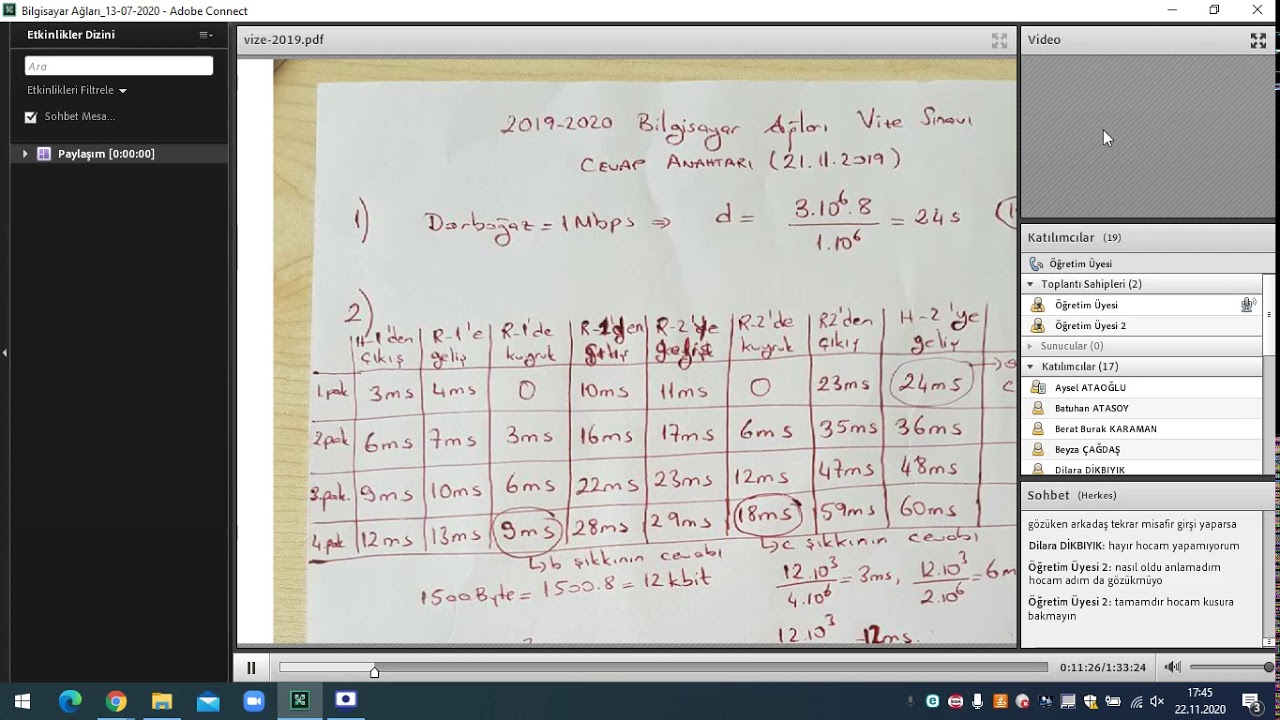 Bilgisayar Ağları_13-07-2020 - Adobe Connect
Etkinlikler Dizini
Ara
Etkinlikleri Filtrele
Sohbet Mesa...
Paylaşım [0:00:00]
vize-2019.pdf
2019-2020 Bilgisayar Ağları Vize Sınavı
CEVAP ANAHTARI (21.11.2019)
1) Darboğaz = 1 Mbps ⇒ d = 3.10⁶.8 / 1.10⁶ = 24 s
2)
H-1'den çıkış R-1'e geliş R-1'de kuyruk R-1'den R-2'ye R-2'de kuyruk R2'den çıkış H-2'ye geliş
1.pak 3ms 4ms 0 10ms 11ms 0 23ms 24ms
2.pak 6ms 7ms 3ms 16ms 17ms 6ms 35ms 36ms
3.pak. 9ms 10ms 6ms 22ms 23ms 12ms 47ms 48ms
4.pak 12ms 13ms 9ms 28ms 29ms 18ms 59ms 60ms
↳ b şıkkının cevabı
↳ c şıkkının cevabı
1500Byte = 1500.8 = 12 kbit
12.10³ / 4.10⁶ = 3ms, 12.10³ / 2.10⁶ = 6m
12.10³ 12ms.
Video
Katılımcılar (19)
Öğretim Üyesi
Toplantı Sahipleri (2)
Öğretim Üyesi
Öğretim Üyesi 2
Sunucular (0)
Katılımcılar (17)
Aysel ATAOĞLU
Batuhan ATASOY
Berat Burak KARAMAN
Beyza ÇAĞDAŞ
Dilara DİKBIYIK
Sohbet (Herkes)
gözüken arkadaş tekrar misafir girşi yaparsa
Dilara DİKBIYIK: hayır hocam yapamıyorum
Öğretim Üyesi 2: nasıl oldu anlamadım
hocam adım da gözükmüyo
Öğretim Üyesi 2: tamamdır hocam kusura
bakmayın
0:11:26/1:33:24
17:45
22.11.2020
3